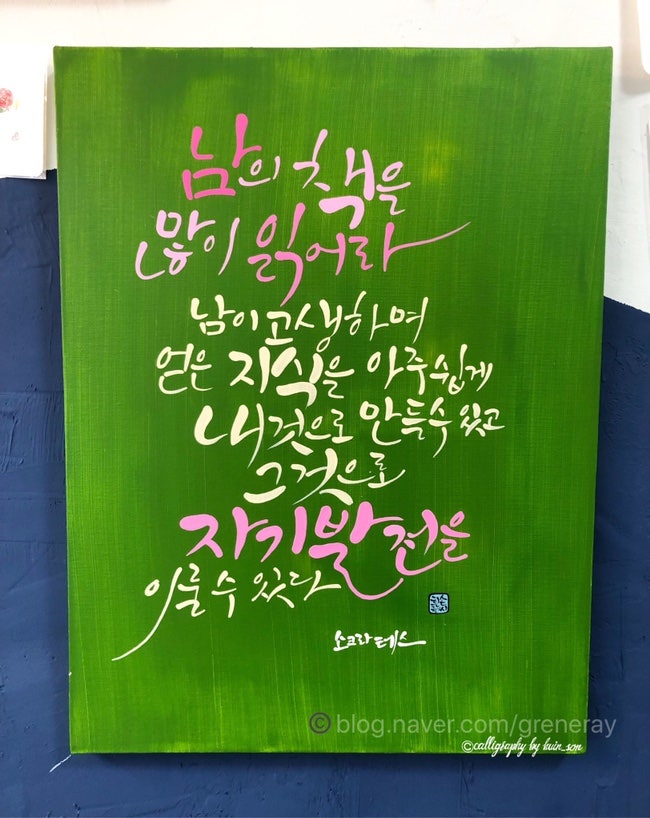 남의 책을
많이 읽어라
남이 고생하여
얻은 지식을 아주 쉽게
내것으로 만들수 있고
그것으로
자기발전을
이룰 수 있다
소크라테스
© blog.naver.com/greneray
©calligraphy by luin_son